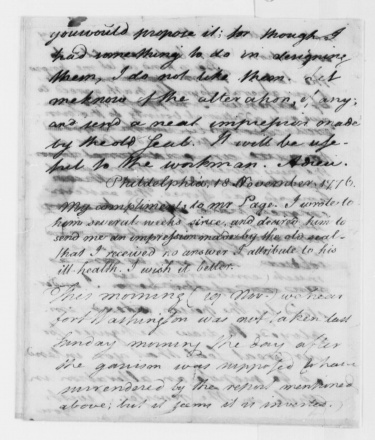 you would propose it: for though I
had something to do in designing
them, I do not like them. Let
me know of the alteration, if any;
and send a neat impression made
by the old Seal. It will be use-
ful to the workman. Adieu.
Philadelphia, 18 November. 1776.
My compliments to mr Page. I wrote to
him several weeks since, and desired him to
send me an impression made by the old seal-
that I received no answer I attribute to his
ill health. I wish it better.
This morning (19 Nov.) we hear
fort Washington was not taken last
Sunday morning the days after
the garrison was supposed to have
surrendered by the report mentioned
above; but it seems it is invested.